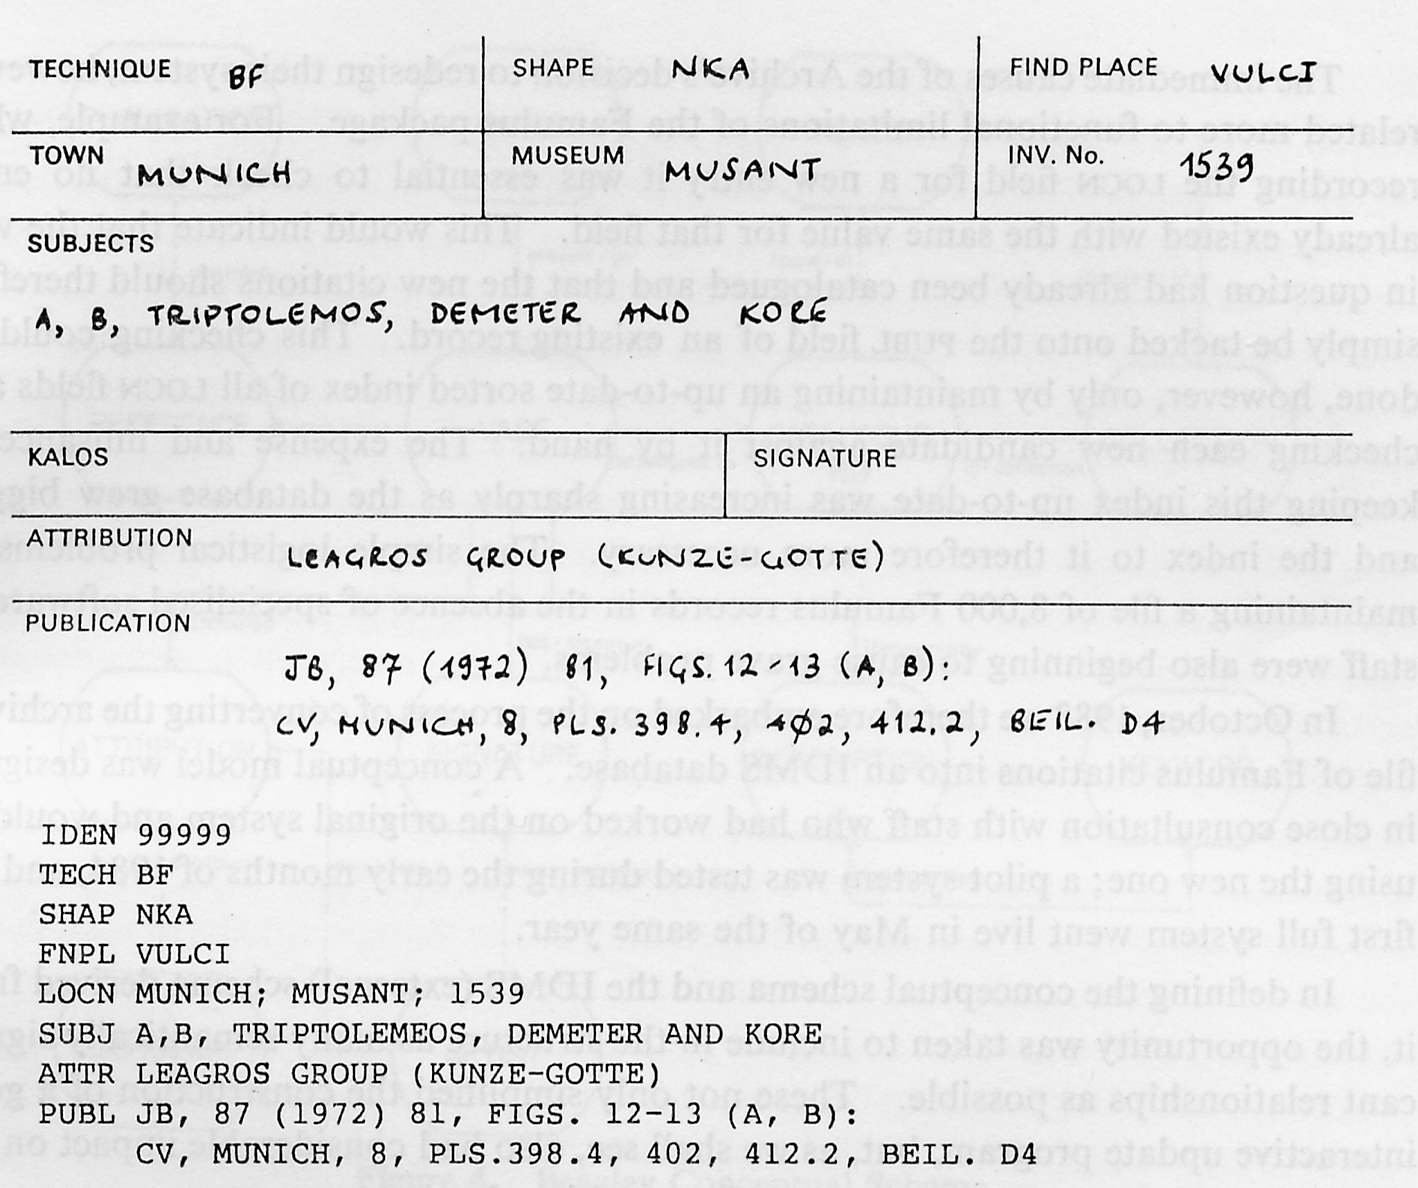 TECHNIQUE BF SHAPE NKA FIND PLACE VULCI
TOWN MUNICH MUSEUM MUSANT INV. No. 1539
SUBJECTS
A, B, TRIPTOLEMOS, DEMETER AND KORE
KALOS SIGNATURE
ATTRIBUTION LEAGROS GROUP (KUNZE-GOTTE)
PUBLICATION
JB, 87 (1972) 81, FIGS. 12-13 (A, B):
CV, MUNICH, 8, PLS. 398.4, 4φ2, 412.2, BEIL. D4
IDEN 99999
TECH BF
SHAP NKA
FNPL VULCI
LOCN MUNICH; MUSANT; 1539
SUBJ A,B, TRIPTOLEMEOS, DEMETER AND KORE
ATTR LEAGROS GROUP (KUNZE-GOTTE)
PUBL JB, 87 (1972) 81, FIGS. 12-13 (A, B):
CV, MUNICH, 8, PLS.398.4, 402, 412.2, BEIL. D4